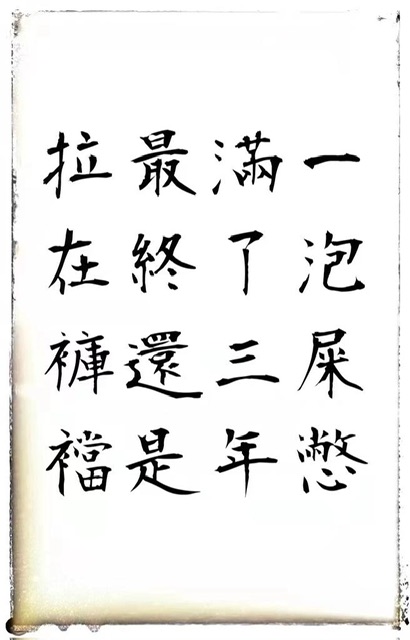 一泡屎憋
滿了三年
最終還是
拉在褲襠